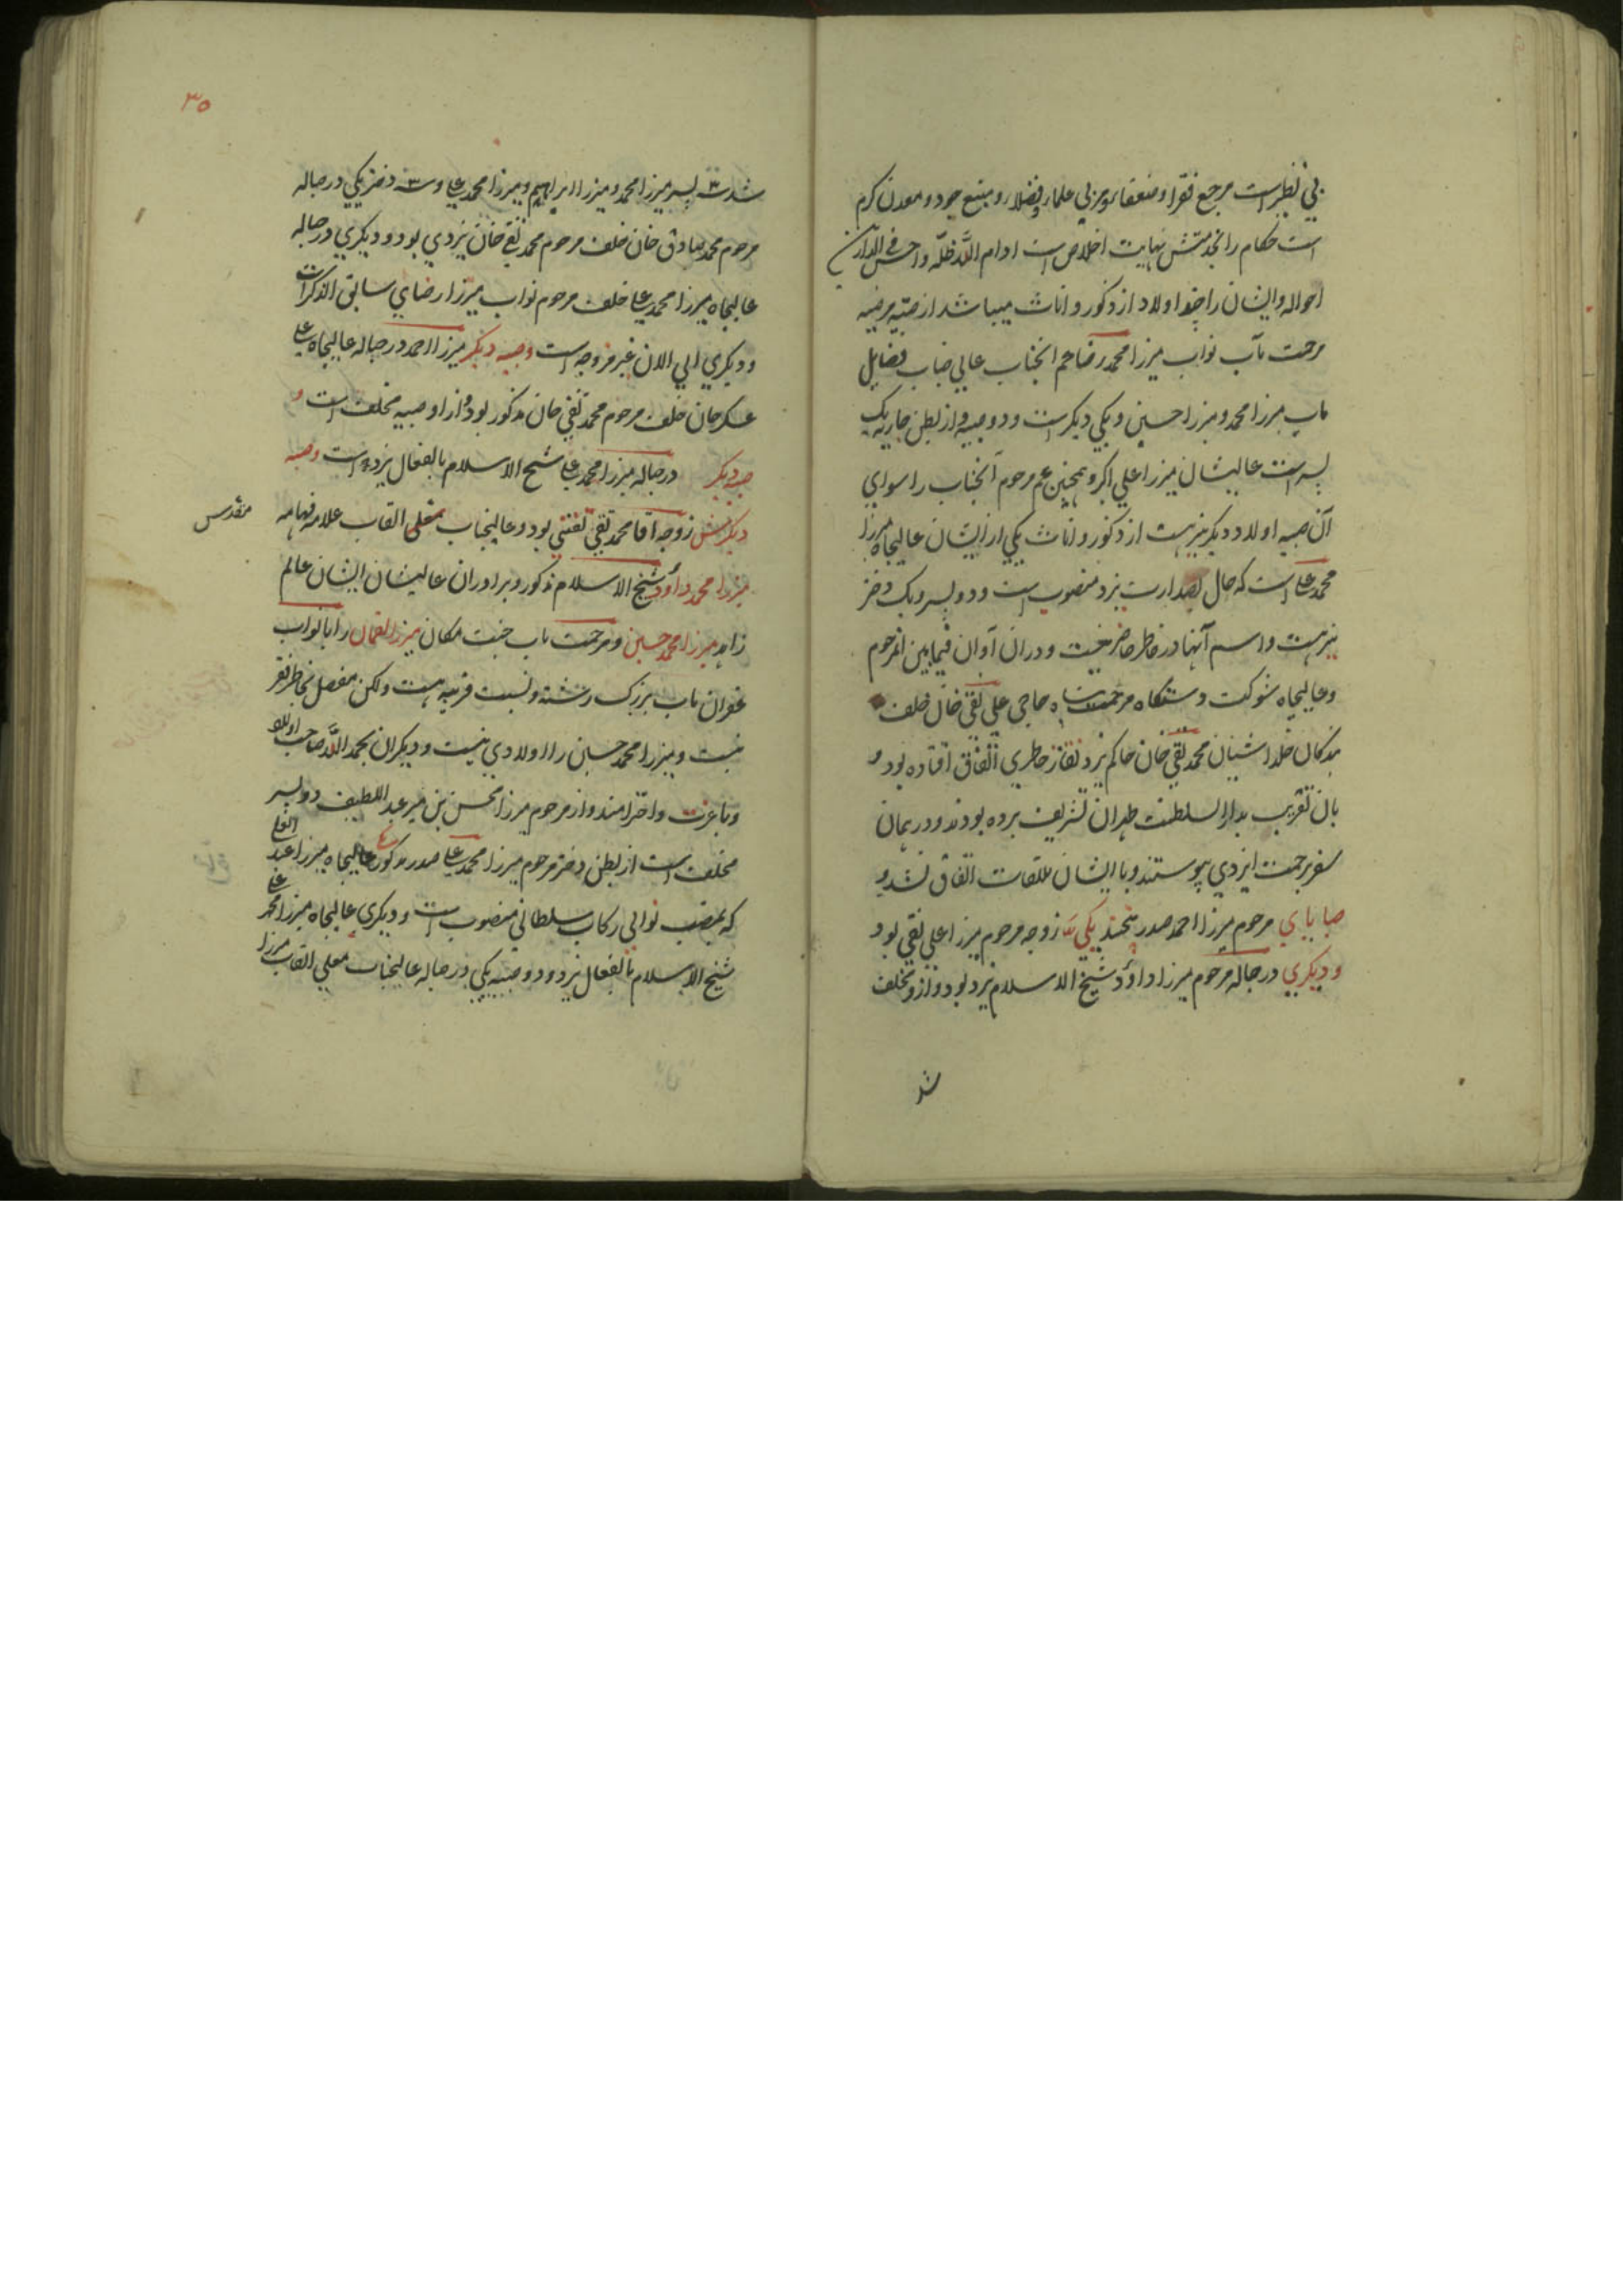 بی نظیر است مرجع فقرا و ضعفا و مربی علماء و فضلا و منبع جود و معدن کرم
است حکام را بخدمتش نهایت اخلاص است ادام اللّه ظلّه و احسن فی الدارین
احواله و ایشان را چند اولاد از ذکور و اناث میباشد از صبیّه مرضیه
مرحمت مآب نواب میرزا محمد رضا عم آنجناب عالی جناب فضایل
مآب میرزا محمد و میرزا حسین و یکی دیگر است و دو صبیه و از بطن جاریه یک
پسر است عالیشان میرزا علی اکبر و همچنین عم مرحوم آنجناب را سوای
آن صبیه اولاد دیگر نیز هست از ذکور و اناث یکی از ایشان عالیجاه میرزا
محمد علی است که حال بصدارت یزد منصوب است و دو پسر و یک دختر
نیز هست و اسم آنها در خاطر حاضر نیست و در آن آوان فیما بین آنمرحوم
و عالیجاه شوکت دستگاه مرحمت پناه حاجی علی نقی خان خلف
بندگان خلد آشیان محمد تقی خان حاکم یزد نقاز خاطری اتفاق افتاده بود و
بان تقریب بدار السلطنت طهران تشریف برده بودند و در همان
سفر برحمت ایزدی پیوستند و با ایشان ملاقات اتفاق نشد و
صبایای مرحوم میرزا احمد صدر پنجند یکی زوجه مرحوم میرزا علی نقی بود
و دیگری در حباله مرحوم میرزا داؤد شیخ الاسلام یزد بود و از و مخلف
شد
۳۵
شد سه پسر میرزا محمد و میرزا ابراهیم و میرزا محمد علی و سه دختر یکی در حباله
مرحوم محمد صادق خان خلف مرحوم محمد تقی خان یزدی بود و دیگری در حباله
عالیجاه میرزا محمد علی خلف مرحوم نواب میرزا رضای سابق الذکر است
و دیگری الی الان غیر مزوجه است و صبیه دیگر میرزا احمد در حباله عالیجاه علی
عسکر خان خلف مرحوم محمد تقی خان مذکور بود و از او صبیه مخلف است و
صبیه دیگر در حباله میرزا محمد علی شیخ الاسلام بالفعال یزد است و صبیه
دیگرش زوجه آقا محمد تقی تفتی بود و عالیجناب معلی القاب علامه فهامه
مقدس
میرزا محمد داؤد شیخ الاسلام مذکور و برادران عالیشان ایشان عالم
زاهد میرزا محمد حسین و مرحمت مآب جنت مکان میرزا لقمان را با نواب
غفران مآب بزرگ رشته و نسبت قریبه هست ولکن مفصل بخاطر فقیر
نیست و میرزا محمد حسین را اولادی نیست و دیگران بحمد اللّه صاحب اولاد
و با عزت و احترامند و از مرحوم میرزا محسن بن میر عبد اللطیف دو پسر
مخلف است از بطن دختر مرحوم میرزا محمد علی صدر مذکور عالیجاه میرزا عبد
که بمنصب نوابی رکاب سلطانی منصوب است و دیگری عالیجاه میرزا محمد علی
شیخ الاسلام بالفعال یزد و دو صبیه یکی در حباله عالیجناب معلی القاب میرزا